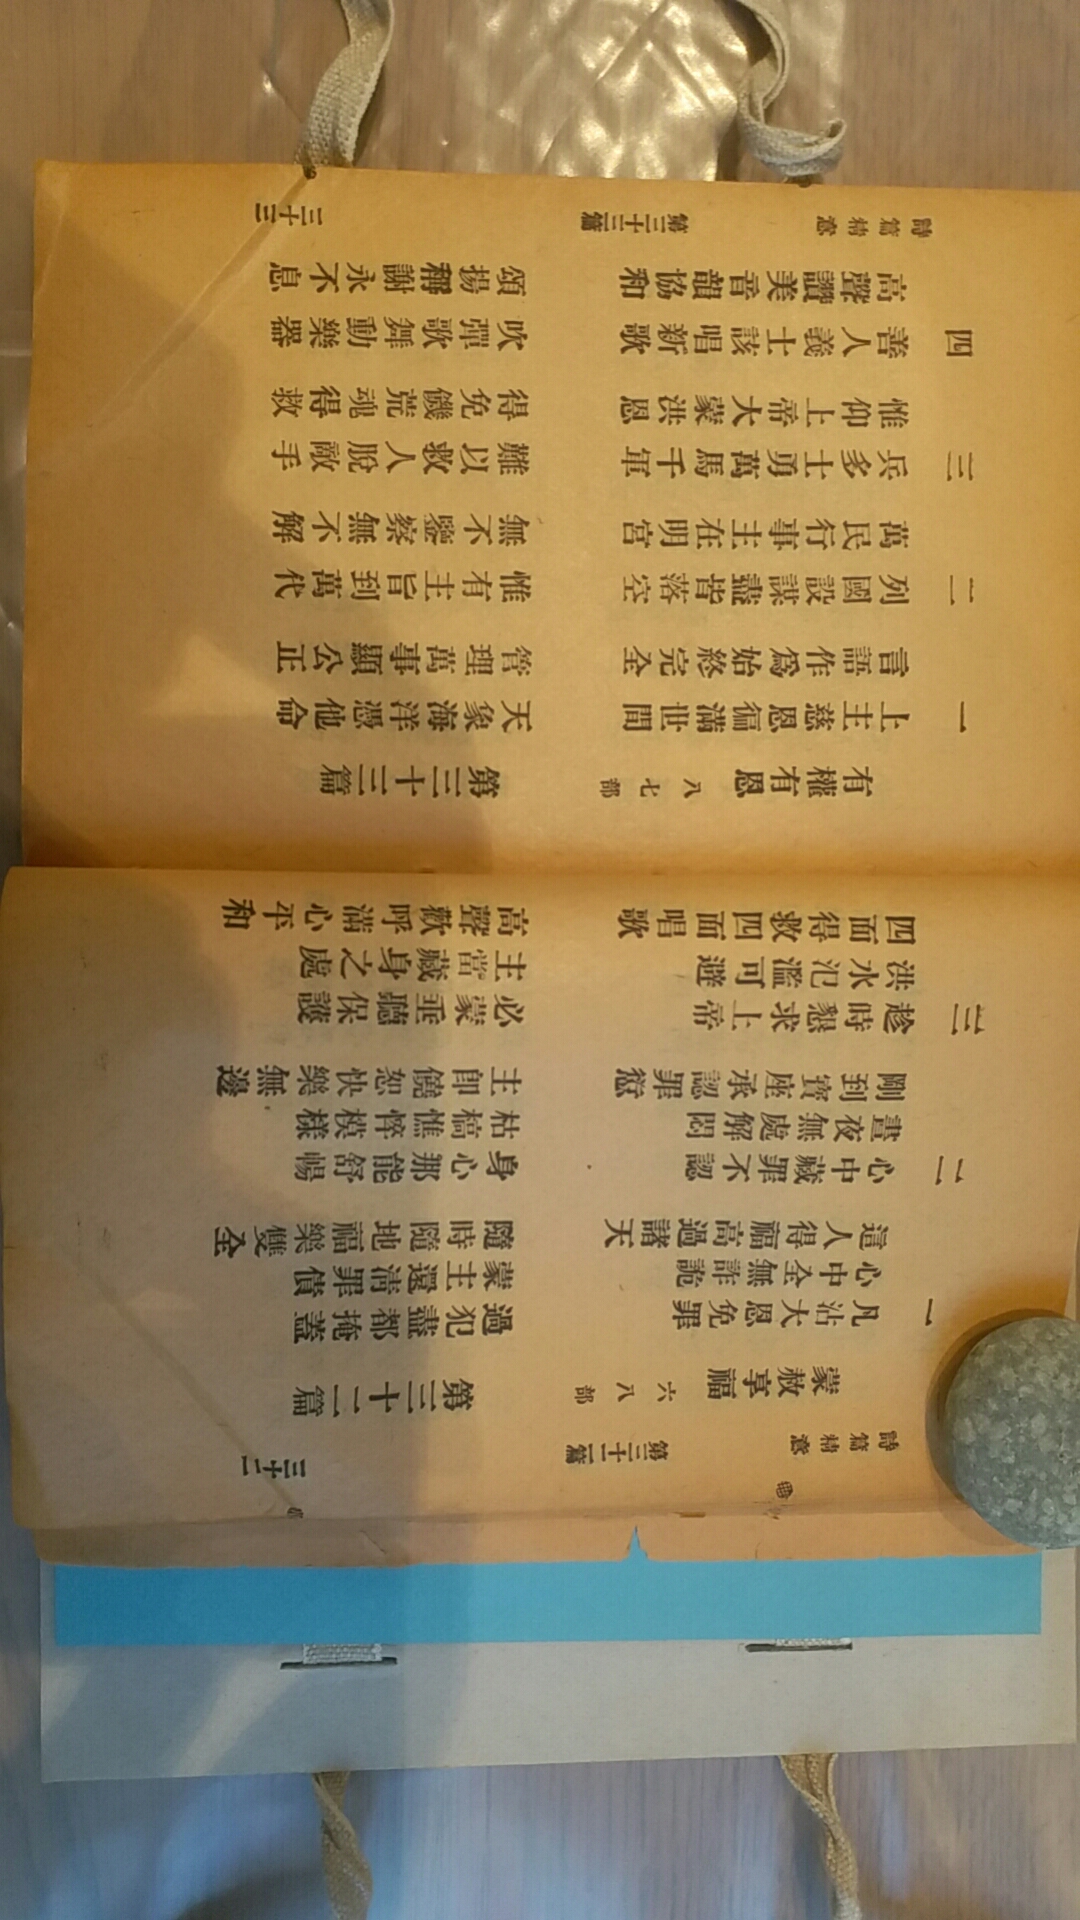 詩篇精意 第三十二篇 三十二
蒙赦享福 六八部 第三十二篇
一 凡沾大恩免罪 過犯盡都掩蓋
心中全無詐詭 蒙主還清罪債
這人得福高過諸天 隨時隨地福樂雙全
二 心中藏罪不認 身心那能舒暢
晝夜無處解悶 枯槁憔悴模樣
剛到寶座承認罪愆 主即饒恕快樂無邊
三 趁時懇求上帝 必蒙垂聽保護
洪水氾濫可避 主當藏身之處
四面得救四面唱歌 高聲歡呼滿心平和
有權有恩 八七部 第三十三篇
一 上主慈恩徧滿世間 天象海洋憑他命
言語作爲始終完全 管理萬事顯公正
二 列國設謀盡皆落空 惟有主旨到萬代
萬民行事主在明宮 無不鑒察無不解
三 兵多士勇萬馬千軍 難以救人脫敵手
惟仰上帝大蒙洪恩 得免饑荒魂得救
四 善人義士該唱新歌 吹彈歌舞動樂器
高聲讚美音韻協和 頌揚稱謝永不息
詩篇精意 第三十三篇 三十三